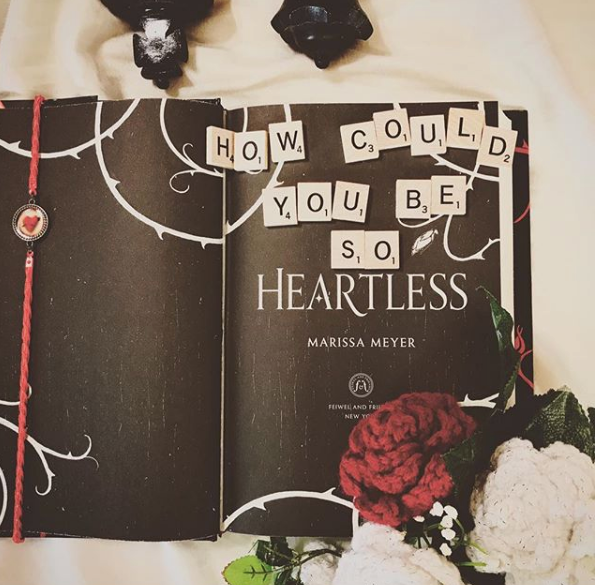 HOW COULD
YOU BE
SO
HEARTLESS
MARISSA MEYER
FEIWEL AND
NEW